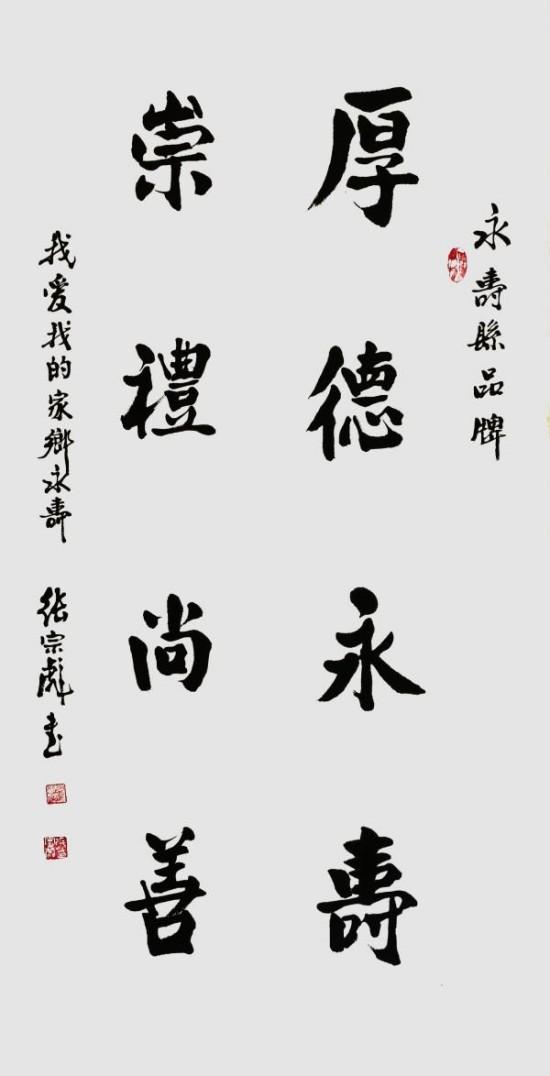 永壽縣品牌
厚德永壽
崇禮尚善
我愛我的家鄉永壽
張宗彪書